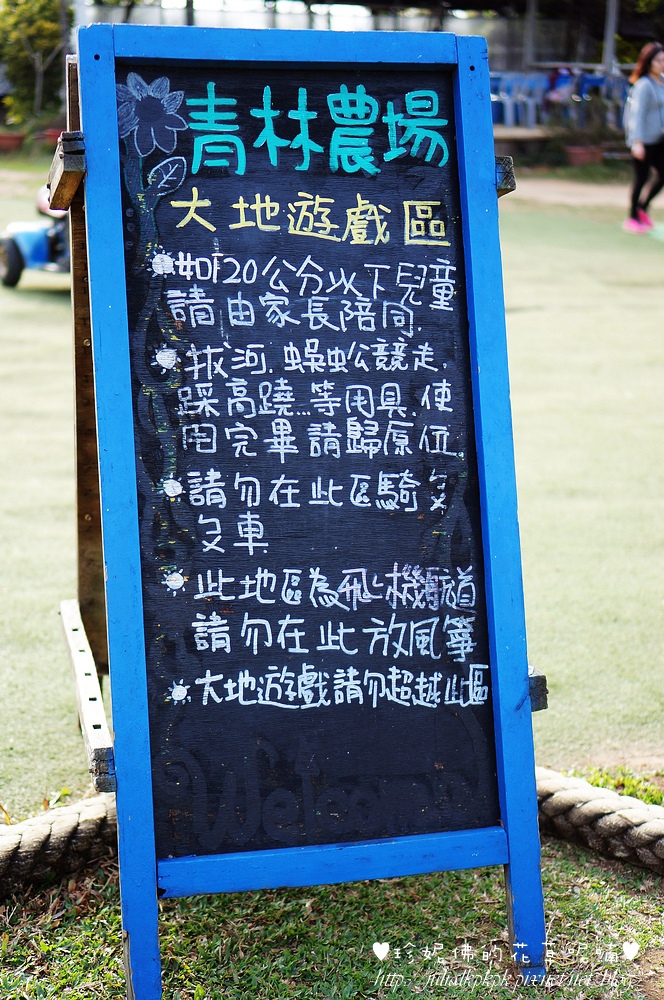 青林農場
大地遊戲區
如20公分以下兒童
請由家長陪同.
拔河.蜈蚣競走.
踩高蹺...等用具.使
用完畢請歸原位.
請勿在此區騎ㄆ
ㄆ車
此地區為飛機航道
請勿在此放風箏
大地遊戲請勿超越此區
Welcome
♥珍妮佛的花草眼睛♥